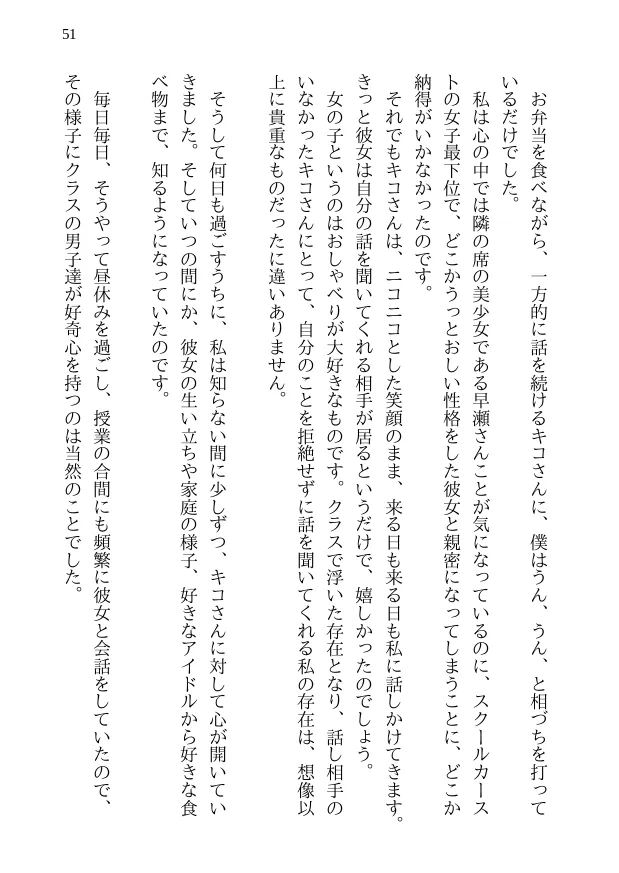 51
お弁当を食べながら、一方的に話を続けるキコさんに、僕はうん、うん、と相づちを打って
いるだけでした。
私は心の中では隣の席の美少女である早瀬さんことが気になっているのに、スクールカース
トの女子最下位で、どこかうっとおしい性格をした彼女と親密になってしまうことに、どこか
納得がいかなかったのです。
それでもキコさんは、ニコニコとした笑顔のまま、来る日も来る日も私に話しかけてきます。
きっと彼女は自分の話を聞いてくれる相手が居るというだけで、嬉しかったのでしょう。
女の子というのはおしゃべりが大好きなものです。クラスで浮いた存在となり、話し相手の
いなかったキコさんにとって、自分のことを拒絶せずに話を聞いてくれる私の存在は、想像以
上に貴重なものだったに違いありません。
そうして何日も過ごすうちに、私は知らない間に少しずつ、キコさんに対して心が開いてい
きました。そしていつの間にか、彼女の生い立ちや家庭の様子、好きなアイドルから好きな食
べ物まで、知るようになっていたのです。
毎日毎日、そうやって昼休みを過ごし、授業の合間にも頻繁に彼女と会話をしていたので、
その様子にクラスの男子達が好奇心を持つのは当然のことでした。